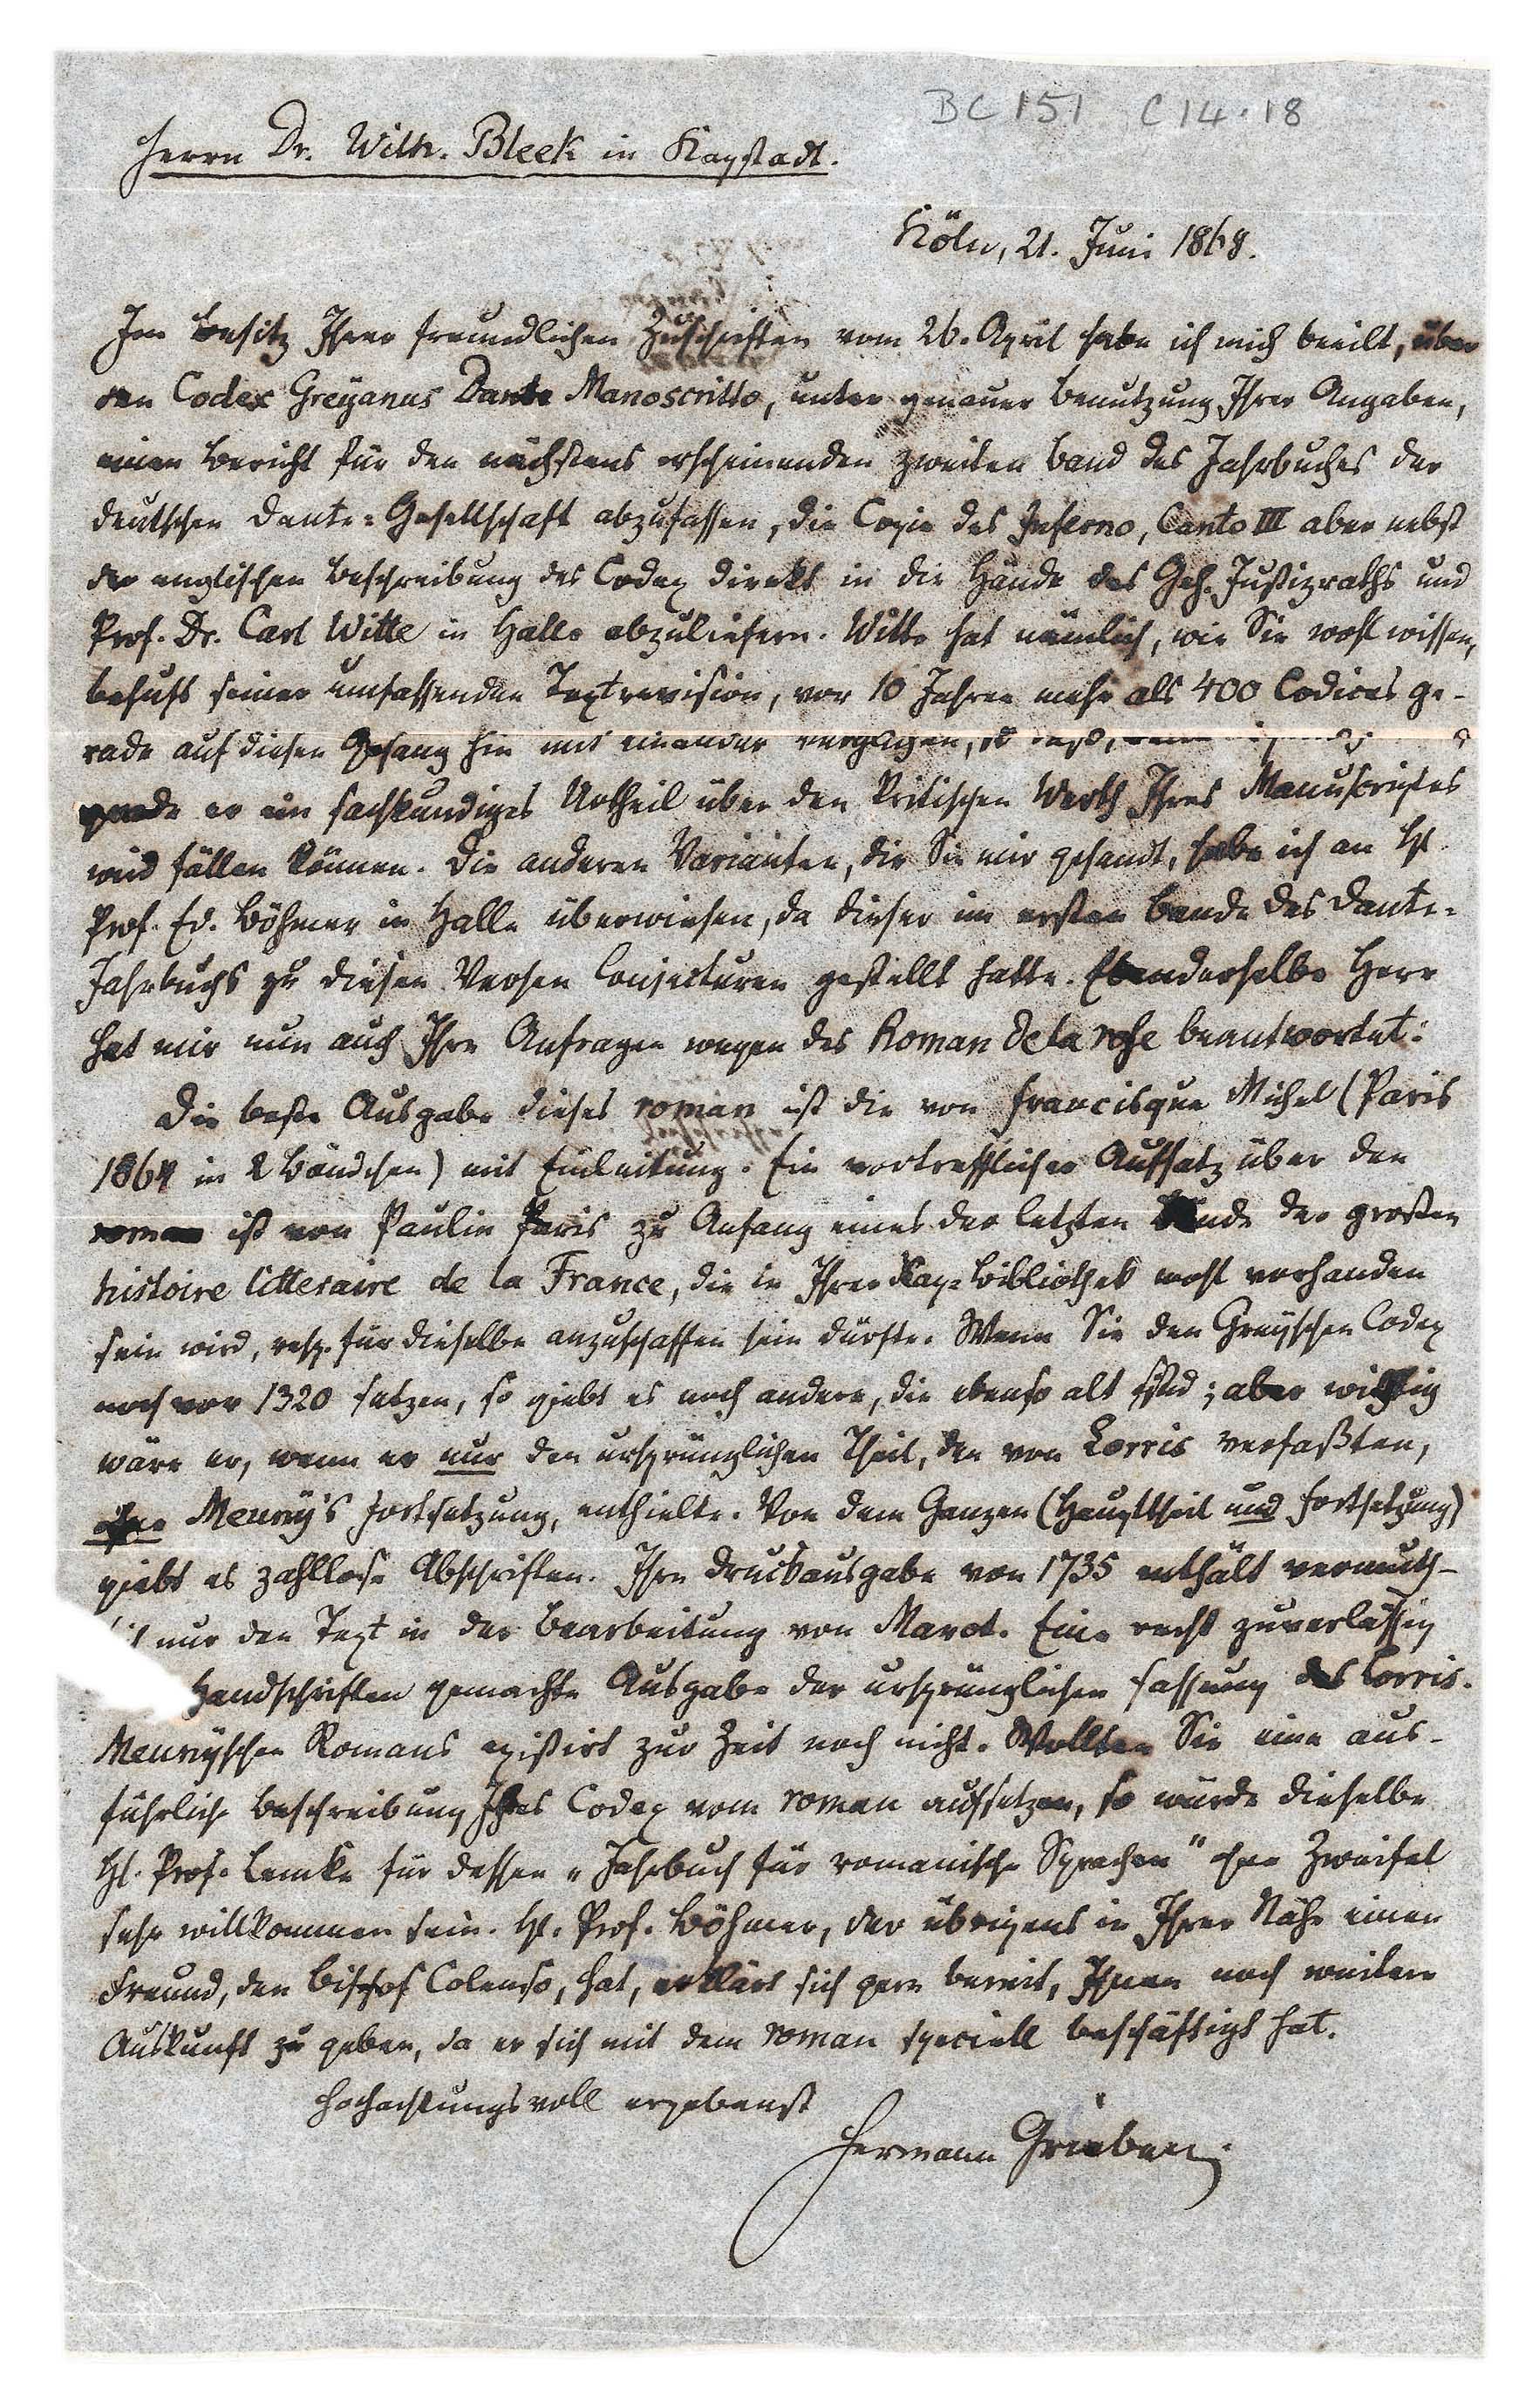 BC 151 C14.18
Herrn Dr. Wilh. Bleek in Kapstadt.
Köln, 21. Juni 1868.
Im Besitz Ihrer freundlichen Zuschriften vom 26. April habe ich mich beeilt, über
den Codex Greyanus Dante Manoscritto, unter genauer Benutzung Ihrer Angaben,
einen Bericht für den nächstens erscheinenden zweiten Band des Jahrbuches der
deutschen Dante-Gesellschaft abzufassen, die Copie des Inferno, Canto III aber nebst
der englischen Beschreibung des Codex direkt in die Hände des Geh. Justizraths und
Prof. Dr. Carl Witte in Halle abzuliefern. Witte hat nämlich, wie Sie wohl wissen,
behufs seiner umfassenden Textrevision, vor 10 Jahren mehr als 400 Codices ge-
rade auf diesen Gesang hin mit einander verglichen, so daß,
er ein sachkundiges Urtheil über den kritischen Werth Ihres Manuscriptes
wird fällen können. Die anderen Varianten, die Sie mir gesandt, habe ich an Hr.
Prof. Ed. Böhmer in Halle überwiesen, da dieser im ersten Bande des Dante-
Jahrbuchs zu diesen Versen Conjecturen gestellt hatte. Ebenderselbe Herr
hat mir nun auch Ihre Anfragen wegen des Roman de la rose beantwortet:
Die beste Ausgabe dieses roman ist die von Francisque Michel (Paris
1864 in 2 Bändchen) mit Einleitung. Ein vortrefflicher Aufsatz über den
roman ist von Paulin Paris zu Anfang eines der letzten Bände der großen
histoire litteraire de la France, die in Ihrer Kap-Bibliothek wohl vorhanden
sein wird, resp. für dieselbe anzuschaffen sein dürfte. Wenn Sie den Greyschen Codex
noch vor 1320 setzen, so giebt es noch andere, die ebenso alt sind; aber wichtig
wäre er, wenn er nur den ursprünglichen Theil, den von Lorris verfaßten,
ohne Meung's Fortsetzung, enthielte. Von dem Ganzen (Haupttheil und Fortsetzung)
giebt es zahllose Abschriften. Ihre Druckausgabe von 1735 enthält vermuth-
lich nur den Text in der Bearbeitung von Marot. Eine recht zuverlässig
Handschriften gemachte Ausgabe der ursprünglichen Fassung des Lorris-
Meungschen Romans existirt zur Zeit noch nicht. Wollten Sie eine aus-
führliche Beschreibung Ihres Codex vom roman aufsetzen, so würde dieselbe
Hr. Prof. Lemke für dessen „Jahrbuch für romanische Sprachen" ohne Zweifel
sehr willkommen sein. Hr. Prof. Böhmer, der übrigens in Ihrer Nähe einen
Freund, den Bischof Colenso, hat, erklärt sich gern bereit, Ihnen noch weitere
Auskunft zu geben, da er sich mit dem roman speciell beschäftigt hat.
Hochachtungsvoll ergebenst
Hermann Grieben.